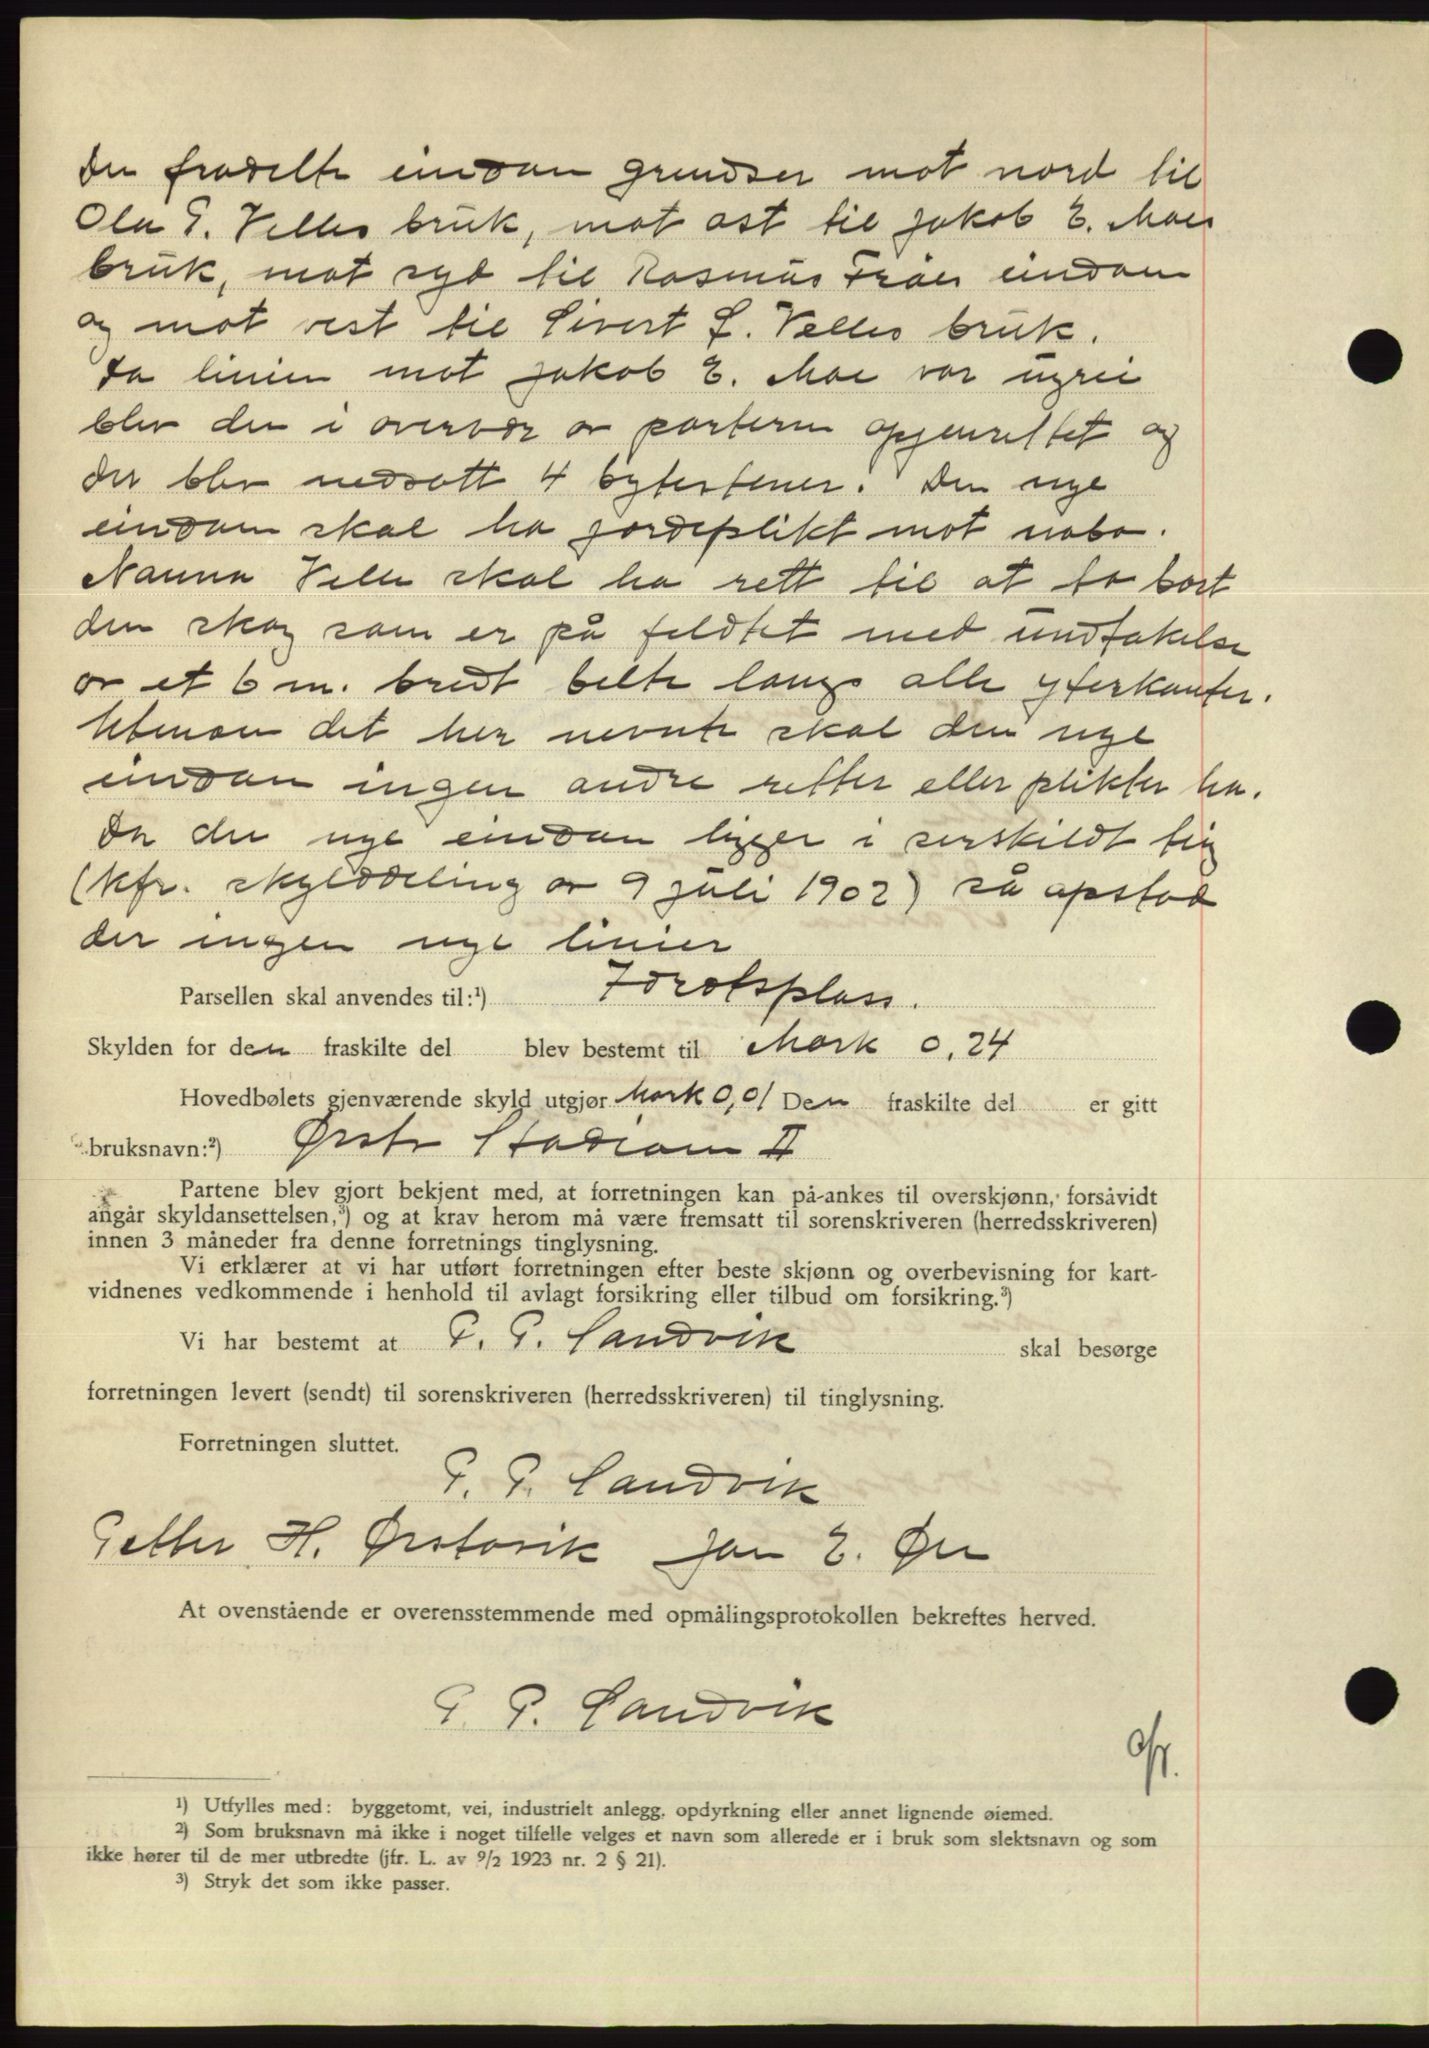 Den fradelte eindom grendser mot nord til
Ola P. Velles bruk, mot ost til Jakob E. Moes
bruk, mot syd til Rasmus Fråes eindom
og mot vest til Sivert L. Velles bruk.
Da linien mot Jakob E. Moe var ugrei
blev den i overvær av parterne opjenrettet og
der blev nedsatt 4 bytestener. Den nye
eindom skal ha jordeplikt mot nabo.
Nanna Velle skal ha rett til at ta bort
den skog som er på feldtet med undtakelse
av et 6 m. bredt belte langs alle yterkanter.
Utenom det her nevnte skal den nye
eindom ingen andre retter eller plikter ha.
Da den nye eindom ligger i serskildt teig
(kfr. skylddeling av 9 juli 1902) så opstod
der ingen nye linier
Parsellen skal anvendes til:¹) Idrotsplass.
Skylden for den fraskilte del blev bestemt til Mark 0,24
Hovedbølets gjenværende skyld utgjør Mark 0,01 Den fraskilte del er gitt
bruksnavn:²) Ørsta Stadion II
Partene blev gjort bekjent med, at forretningen kan på-ankes til overskjønn, forsåvidt
angår skyldansettelsen,³) og at krav herom må være fremsatt til sorenskriveren (herredsskriveren)
innen 3 måneder fra denne forretnings tinglysning.
Vi erklærer at vi har utført forretningen efter beste skjønn og overbevisning for kart-
vidnenes vedkommende i henhold til avlagt forsikring eller tilbud om forsikring.³)
Vi har bestemt at P. P. Sandvik skal besørge
forretningen levert (sendt) til sorenskriveren (herredsskriveren) til tinglysning.
Forretningen sluttet.
P. P. Sandvik
Petter H. Ørstavik Jon E. Øen
At ovenstående er overensstemmende med opmålingsprotokollen bekreftes herved.
P. P. Sandvik
¹) Utfylles med: byggetomt, vei, industrielt anlegg, opdyrkning eller annet lignende øiemed.
²) Som bruksnavn må ikke i noget tilfelle velges et navn som allerede er i bruk som slektsnavn og som
ikke hører til de mer utbredte (jfr. L. av 9/2 1923 nr. 2 § 21).
³) Stryk det som ikke passer.